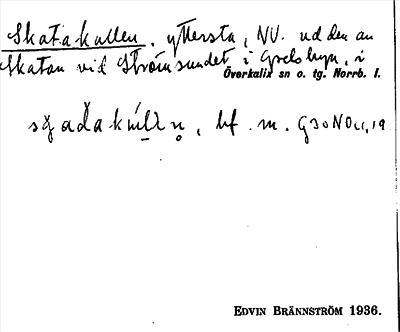 Skatakallen, yttersta, NV. udden av
Skatan vid Strömsundet i Gyelsbyn, i
Överkalix sn o. tg. Norrb. l.
bf. m. G30NOu,19
EDVIN BRÄNNSTRÖM 1936.